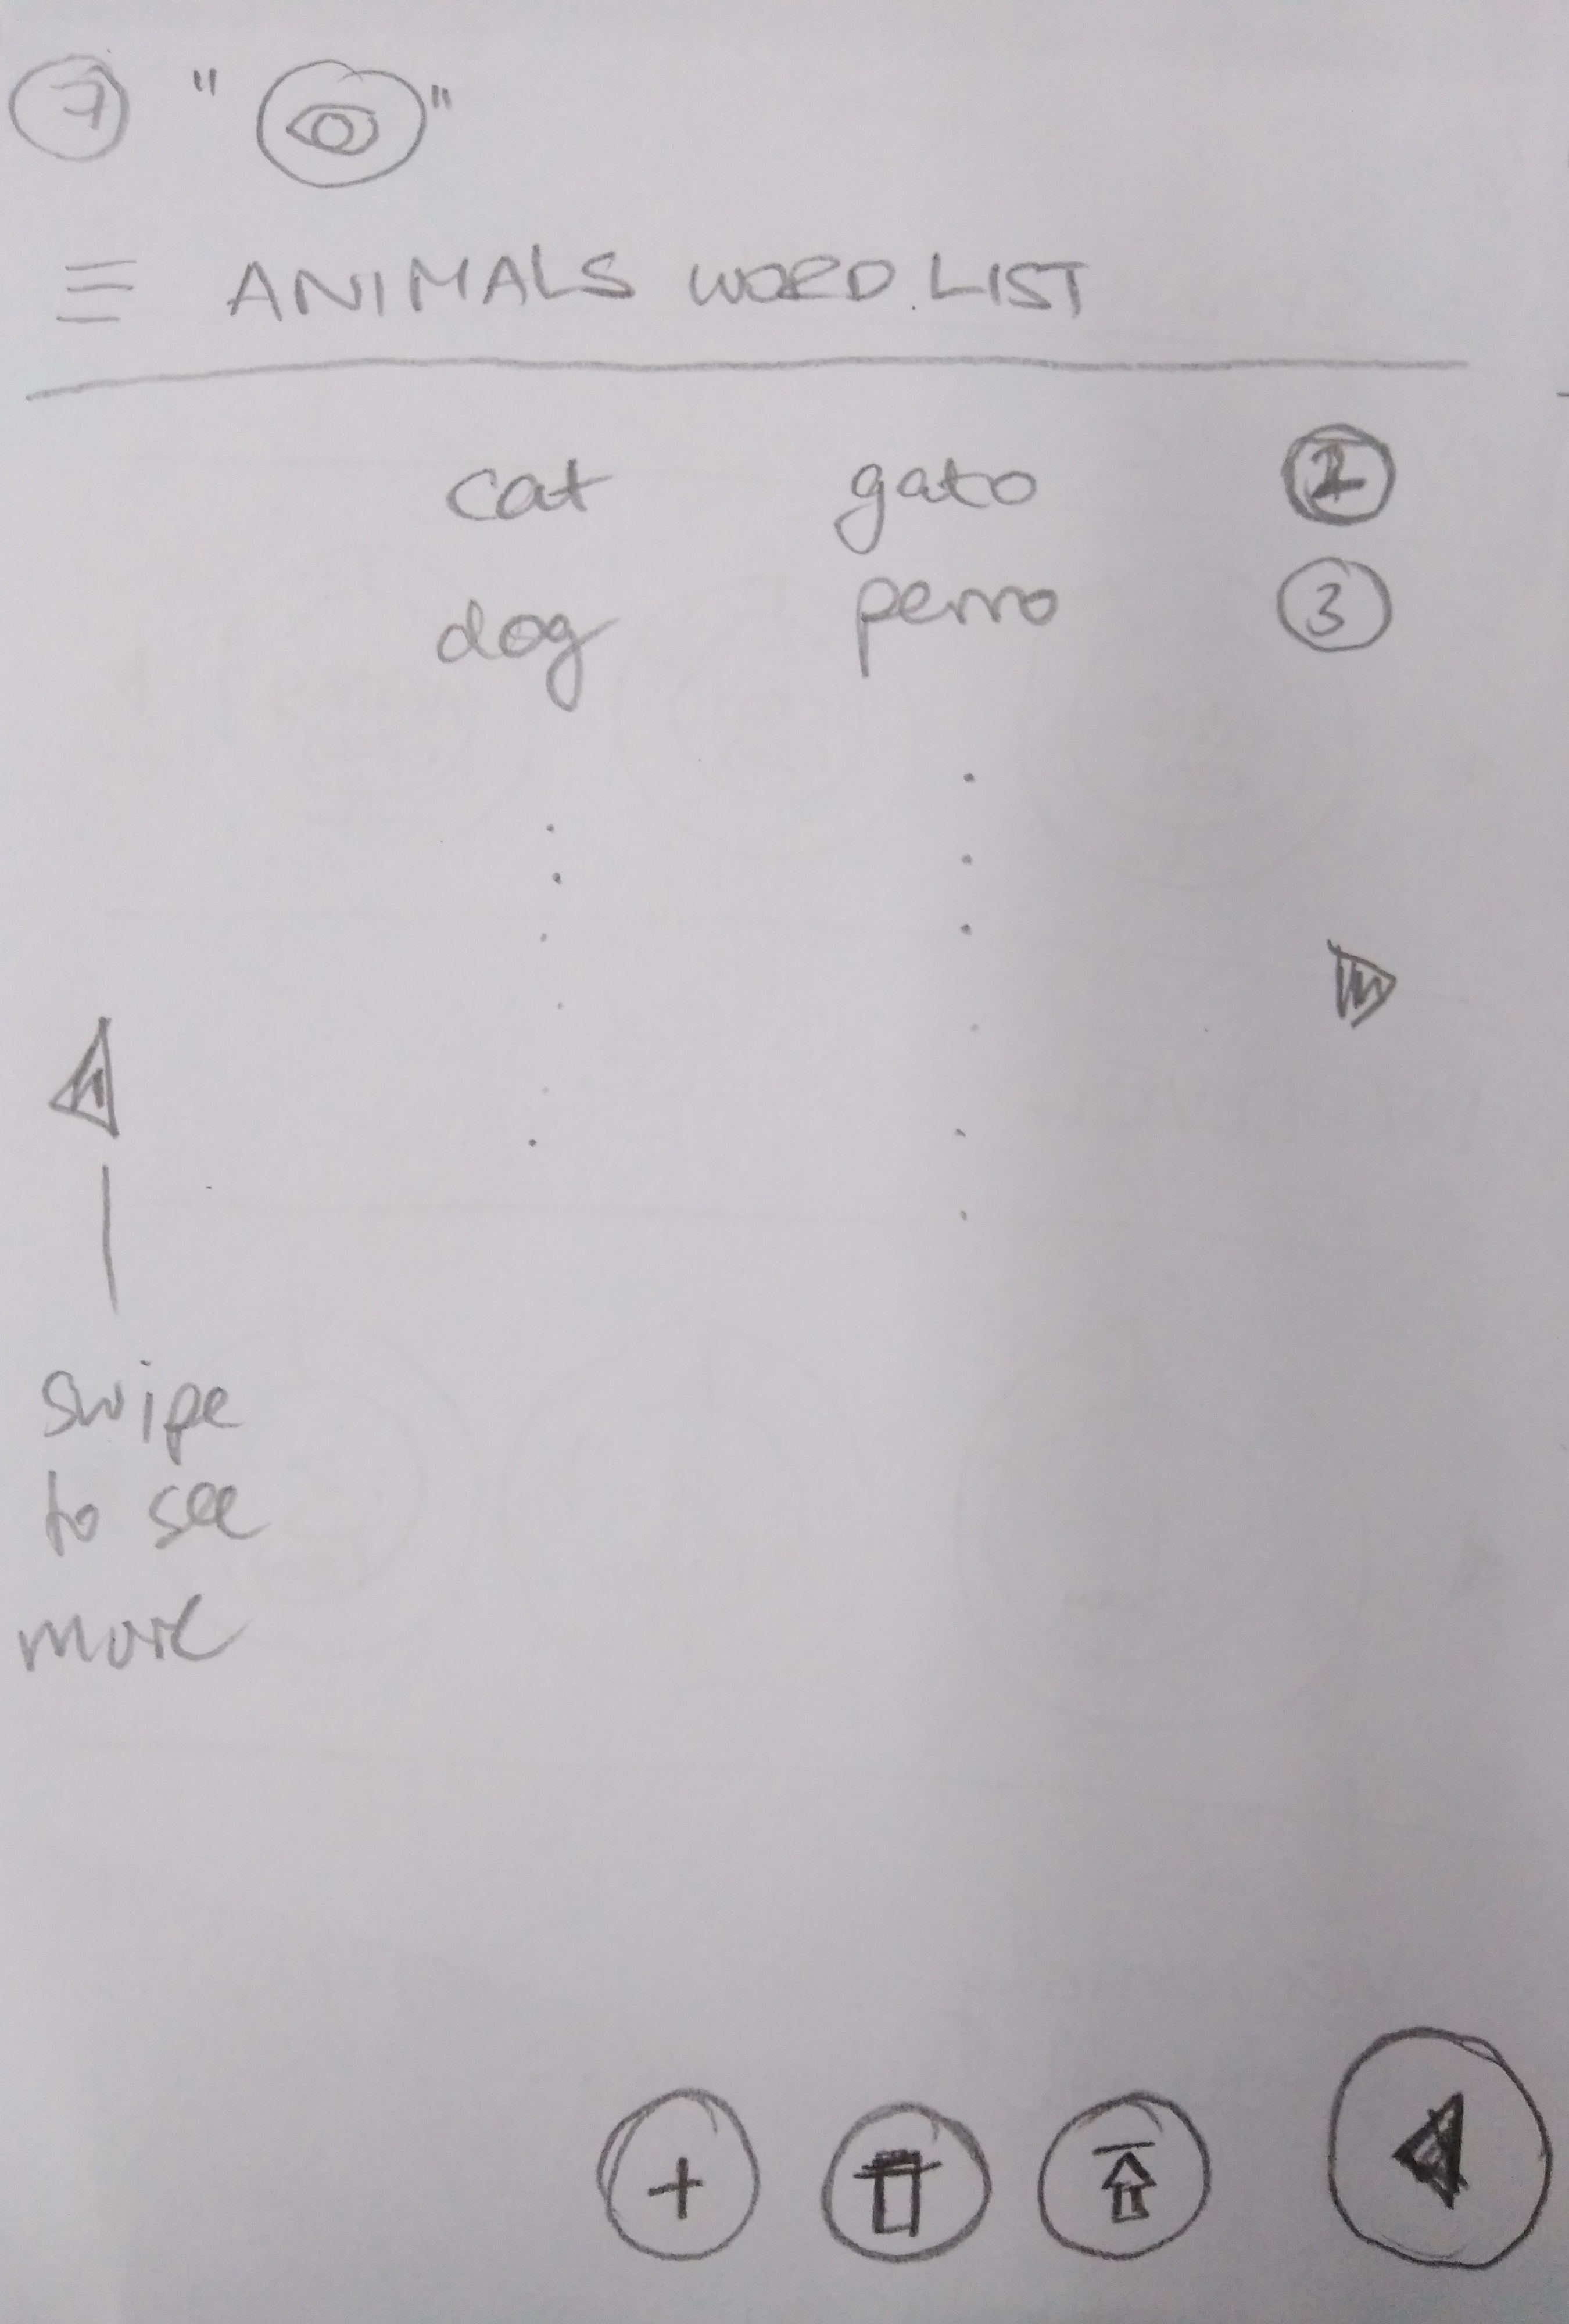 7 " "
ANIMALS WORD LIST
cat gato
dog perro 3
swipe
to see
more
+